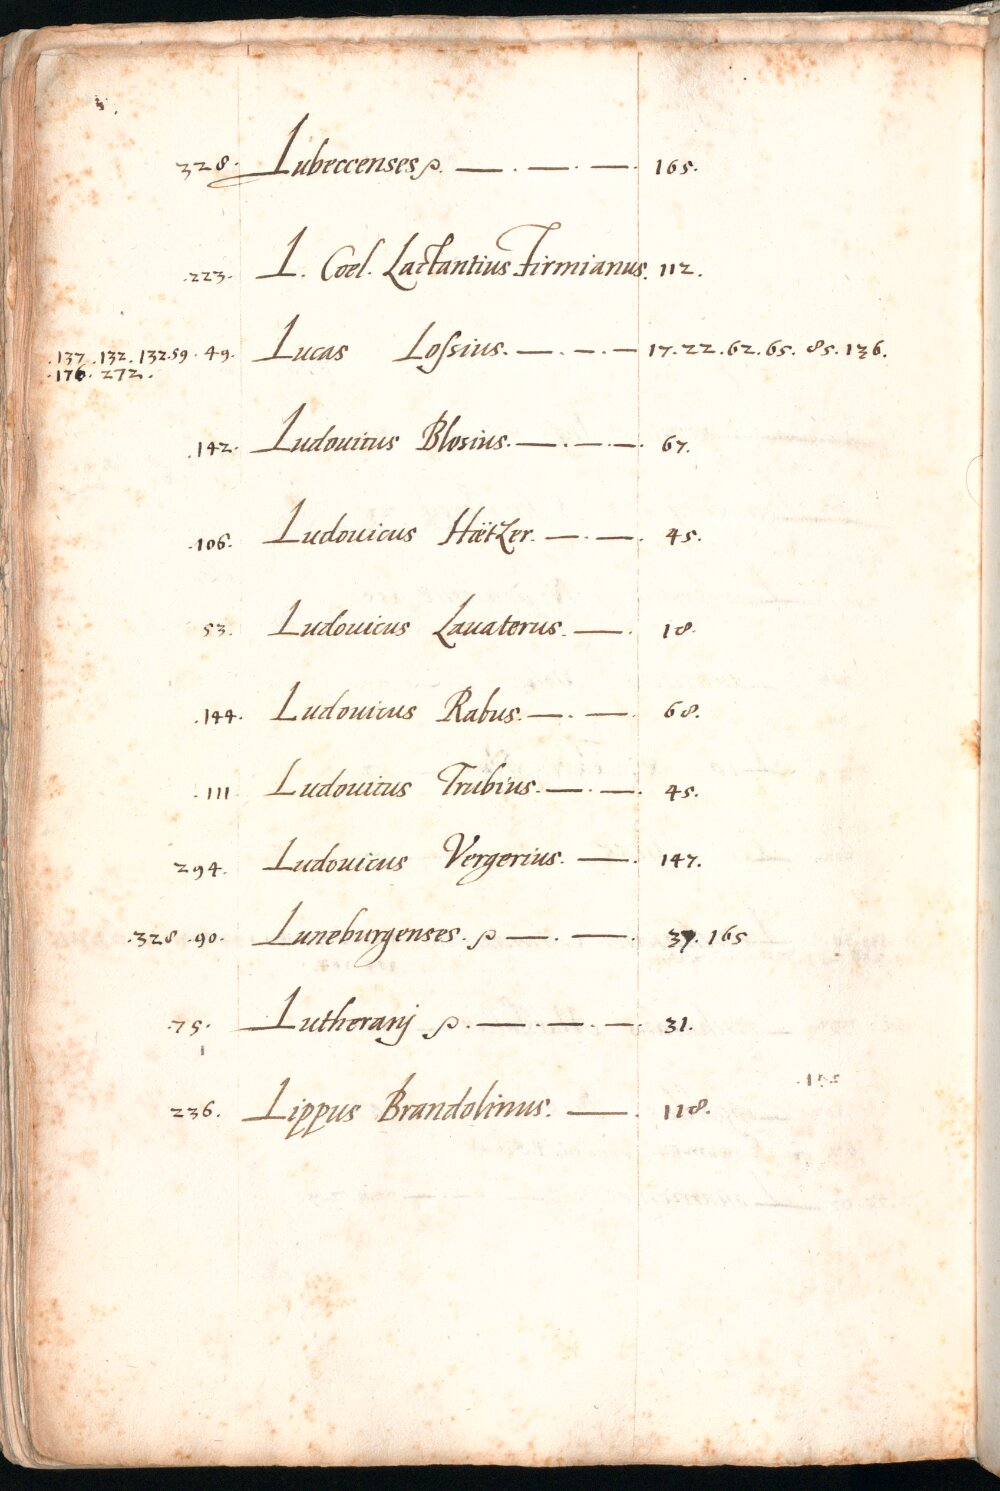 328. Lubeccenses p. — . — . — . 165.
.223. L. Coel. Lactantius Firmianus. 112.
.137 .132. 132.59 . 49. Lucas Loſsius. — . — . — 17. 22. 62. 65. 85. 136.
.176. 272.
.142. Ludouicus Blosius. — . — . — . 67.
.106. Ludouicus Hoëtzer. — . — . 45.
53. Ludouicus Lauaterus. — . 18.
.144. Ludouicus Rabus. — . — . 68.
. 111 Ludouicus Trubius. — . — . 45.
294. Ludouicus Vergerius. — . 147.
.328 .90. Luneburgenses. p — . — . 37. 165
.75. Lutheranj p. — . — . — . 31.
236. Lippus Brandolinus. — . 118.